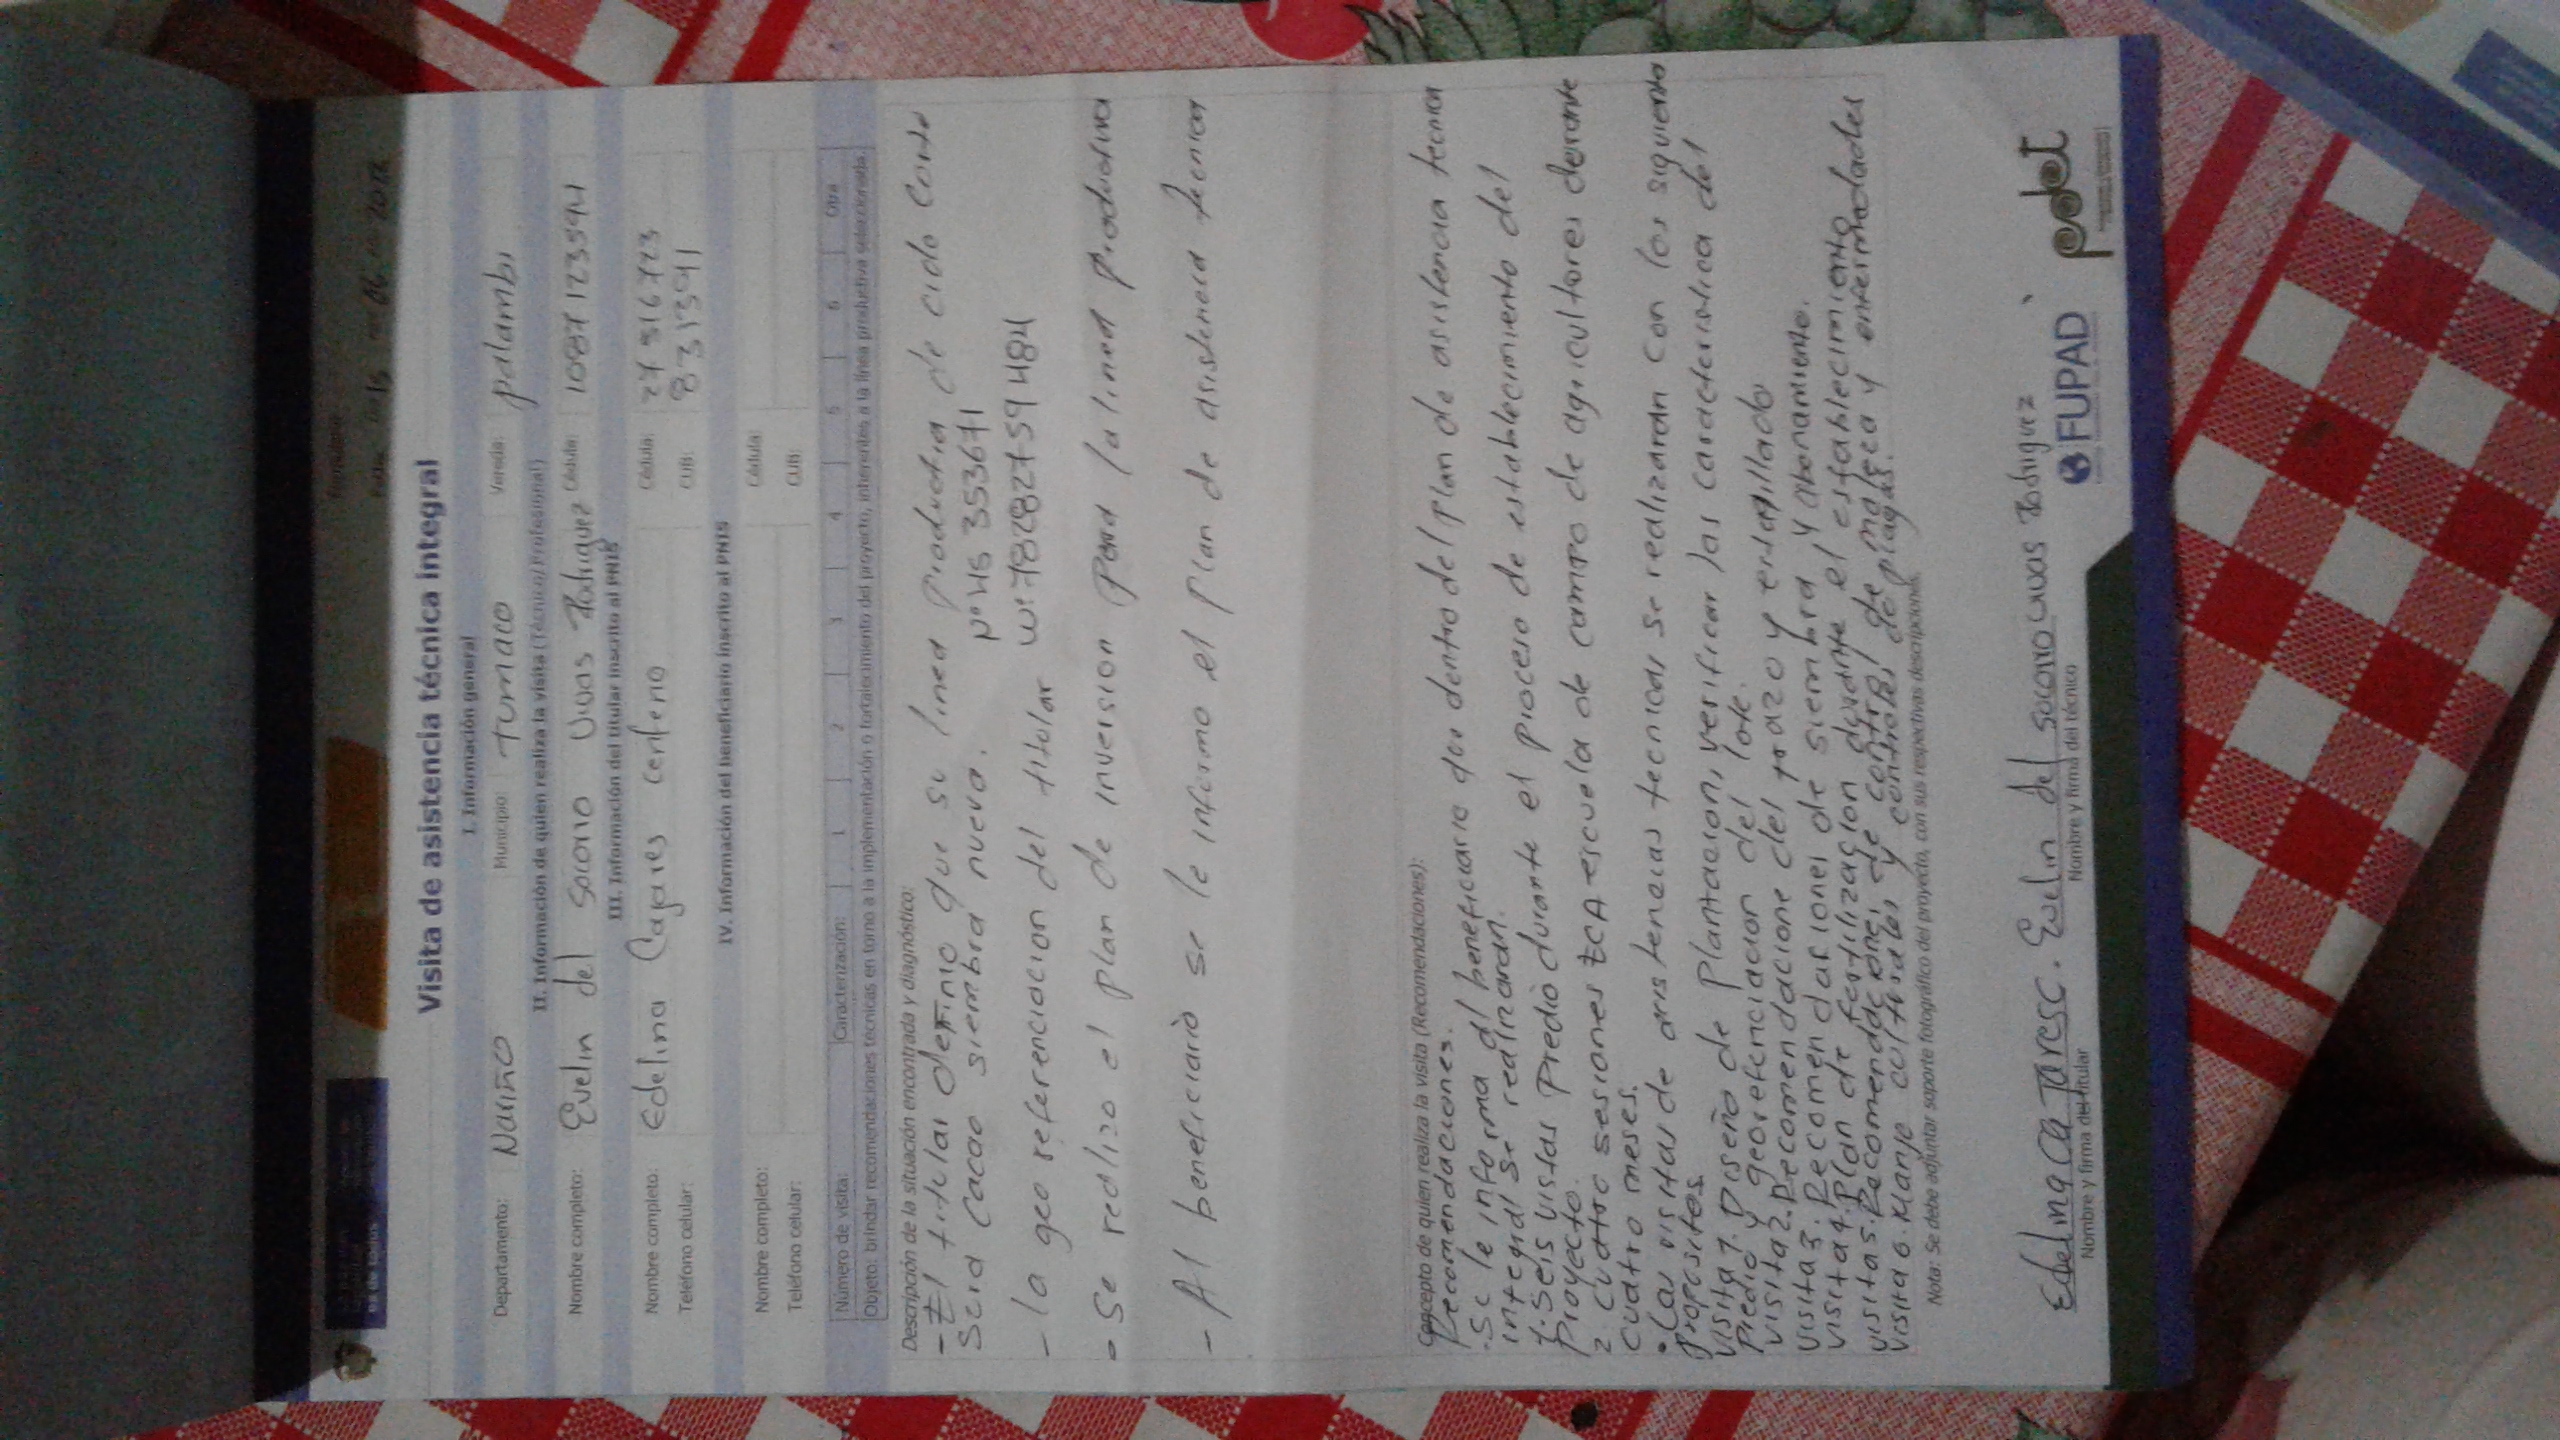 Formulario
15 06 2022
Visita de asistencia técnica integral
I. Información general
Departamento: Nariño Municipio: Tumaco Vereda: palambi
II. Información de quien realiza la visita (Técnico/Profesional)
Nombre completo: Evelin del socorro vivas Rodriguez Cédula: 1087123594
III. Información del titular inscrito al PNIS
Nombre completo: Edelina Cajares centeno Cédula: 27 516723
Teléfono celular: CUB: 831591
IV. Información del beneficiario inscrito al PNIS
Nombre completo: Cédula:
Teléfono celular: CUB:
Número de visita: Caracterización: 1 2 3 4 5 6 Otra
Objeto: brindar recomendaciones técnicas en torno a la implementación o fortalecimiento del proyecto, inherentes a la línea productiva seleccionada.
Descripción de la situación encontrada y diagnóstico:
- El titular definio que su linea productiva de ciclo corto
Seria cacao siembra nueva. N° 45 353671
- la geo referenciacion del titular W: 782827594484
- Se realizo el plan de inversion para la linea productiva
- Al beneficiario se le informo el plan de asistencia tecnica
Concepto de quien realiza la visita (Recomendaciones):
Recomendaciones.
. Se le informa al beneficiario que dentro del plan de asistencia tecnica
integral se realizaran.
1. Seis vistas Predio durante el proceso de establecimiento del
proyecto.
2. cuatro sesiones ECA escuela de campo de agricultores durante
cuatro meses.
• las visitas de asistencias tecnicas se realizaran con los siguiente
propositos.
visita 1. Diseño de plantacion, verificar las caracteristica del
Predio y georefenciacion del lote.
visita 2. Recomendacione del trazo y entapillado
visita 3. Recomendaciones de siembra y abonamiento.
visita 4. Plan de fertilizacion durante el establecimiento
visita 5. Recomendaciones de control de maleza y enfermedades
visita 6. Manje culturales y controles de plagas.
Nota: Se debe adjuntar soporte fotográfico del proyecto, con sus respectivas descripciones.
Edelina CaJares C. Evelin del socorro vivas Rodriguez
Nombre y firma del titular Nombre y firma del técnico
FUPAD pdet